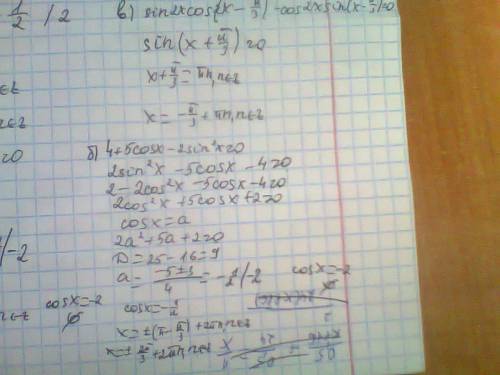 1/2 / 2
в) sin2xcos(x - π/3) - cos2x sin(x - π/3)=0
sin(x + π/3)=0
x + π/3 = πn, n∈z
x = -π/3 + πn, n∈z
б) 4+5cosx - 2sin²x=0
2sin²x - 5cosx - 4=0
2 - 2cos²x - 5cosx - 4=0
2cos²x + 5cosx + 2=0
cosx = a
2a² + 5a + 2=0
D = 25 - 16 = 9
a = (-5±3)/4 = -1/2 / -2
cosx = -2
∅
cosx = -1/2
x = ±(π - π/3) + 2πn, n∈z
x = ± 2π/3 + 2πn, n∈z
/-2
cosx = -2
∅